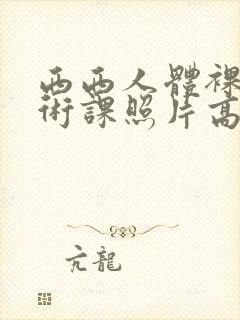 西西人體裸
術課照片高
亢龍